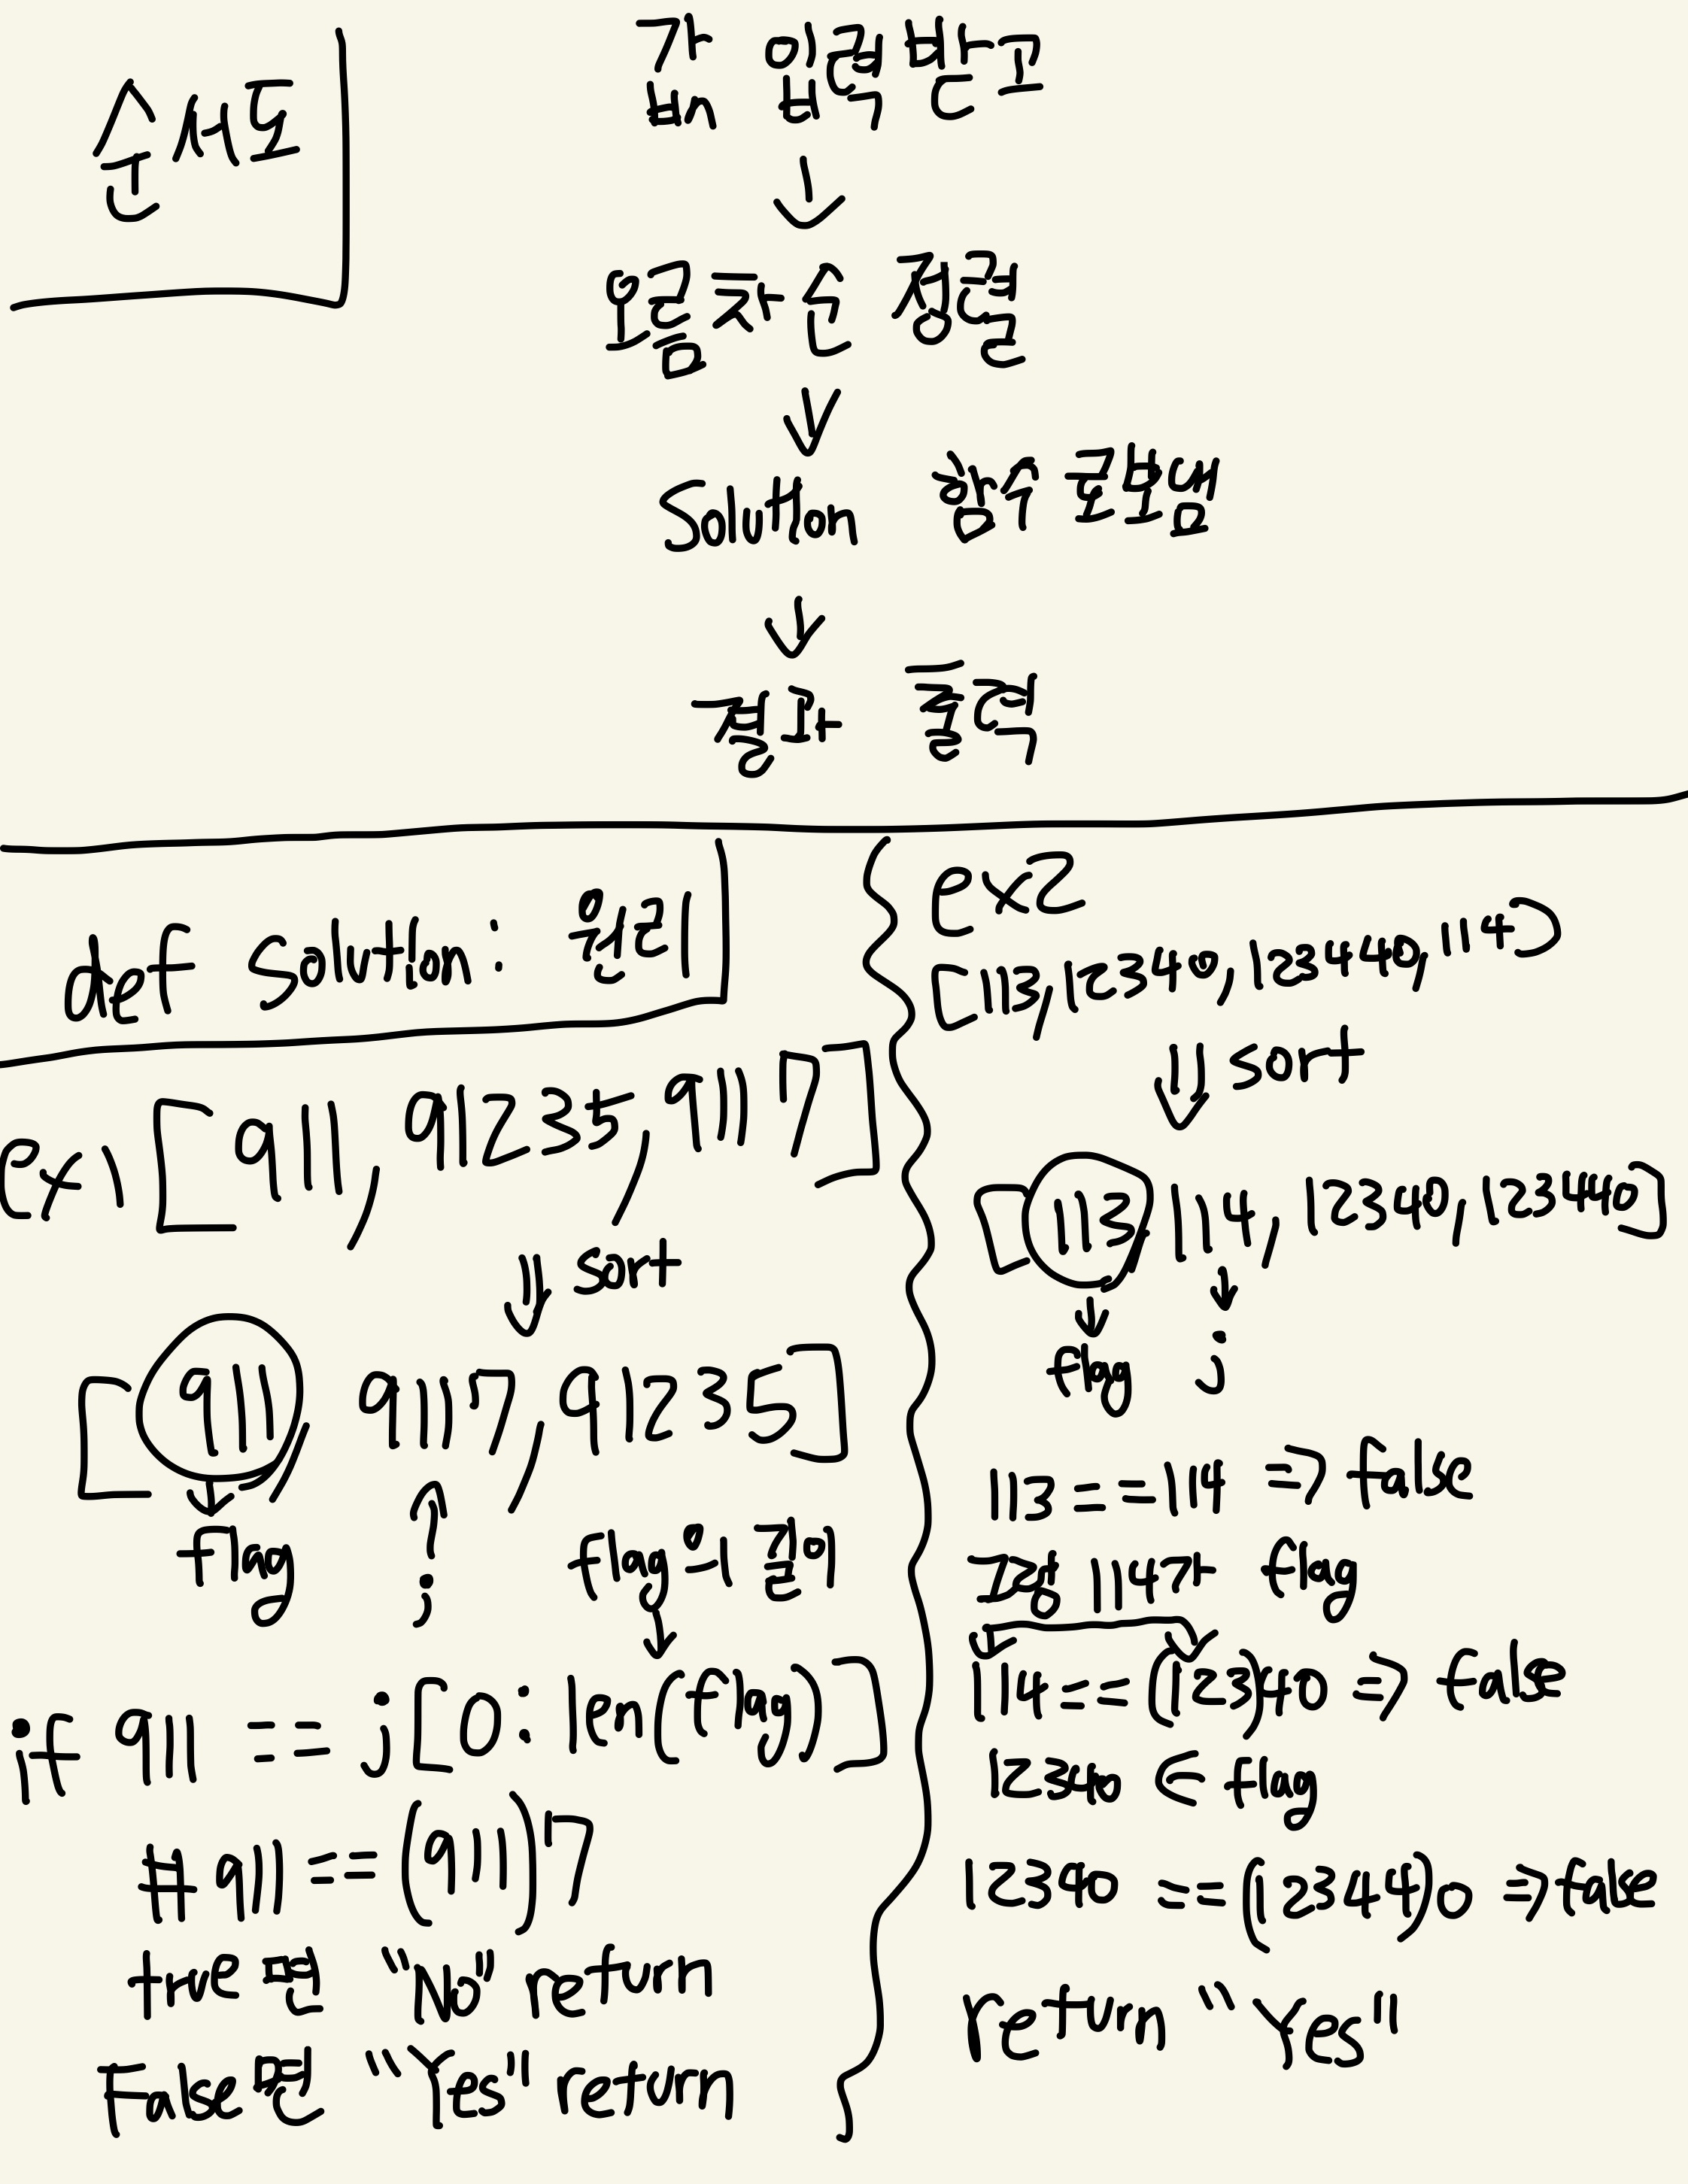 순서도
값 입력 받고
↓
오름차순 정렬
↓
Solution 함수 콜
↓
결과 출력
def solution: 원리
ex1 [911, 91235, 9117]
⇓ sort
[911, 9117, 91235]
flag
j
flag의 길이
if 911 == j[0:len(flag)]
# 911 == (911)7
true면 "No" return
False면 "Yes" return
ex2
[113,12340,123440,114]
⇓ sort
[113, 114, 12340, 123440]
flag
j
113 == 114 => false
114가 flag
114 == (123)40 => false
12340 ∈ flag
12340 == (12344)0 => false
return "Yes"